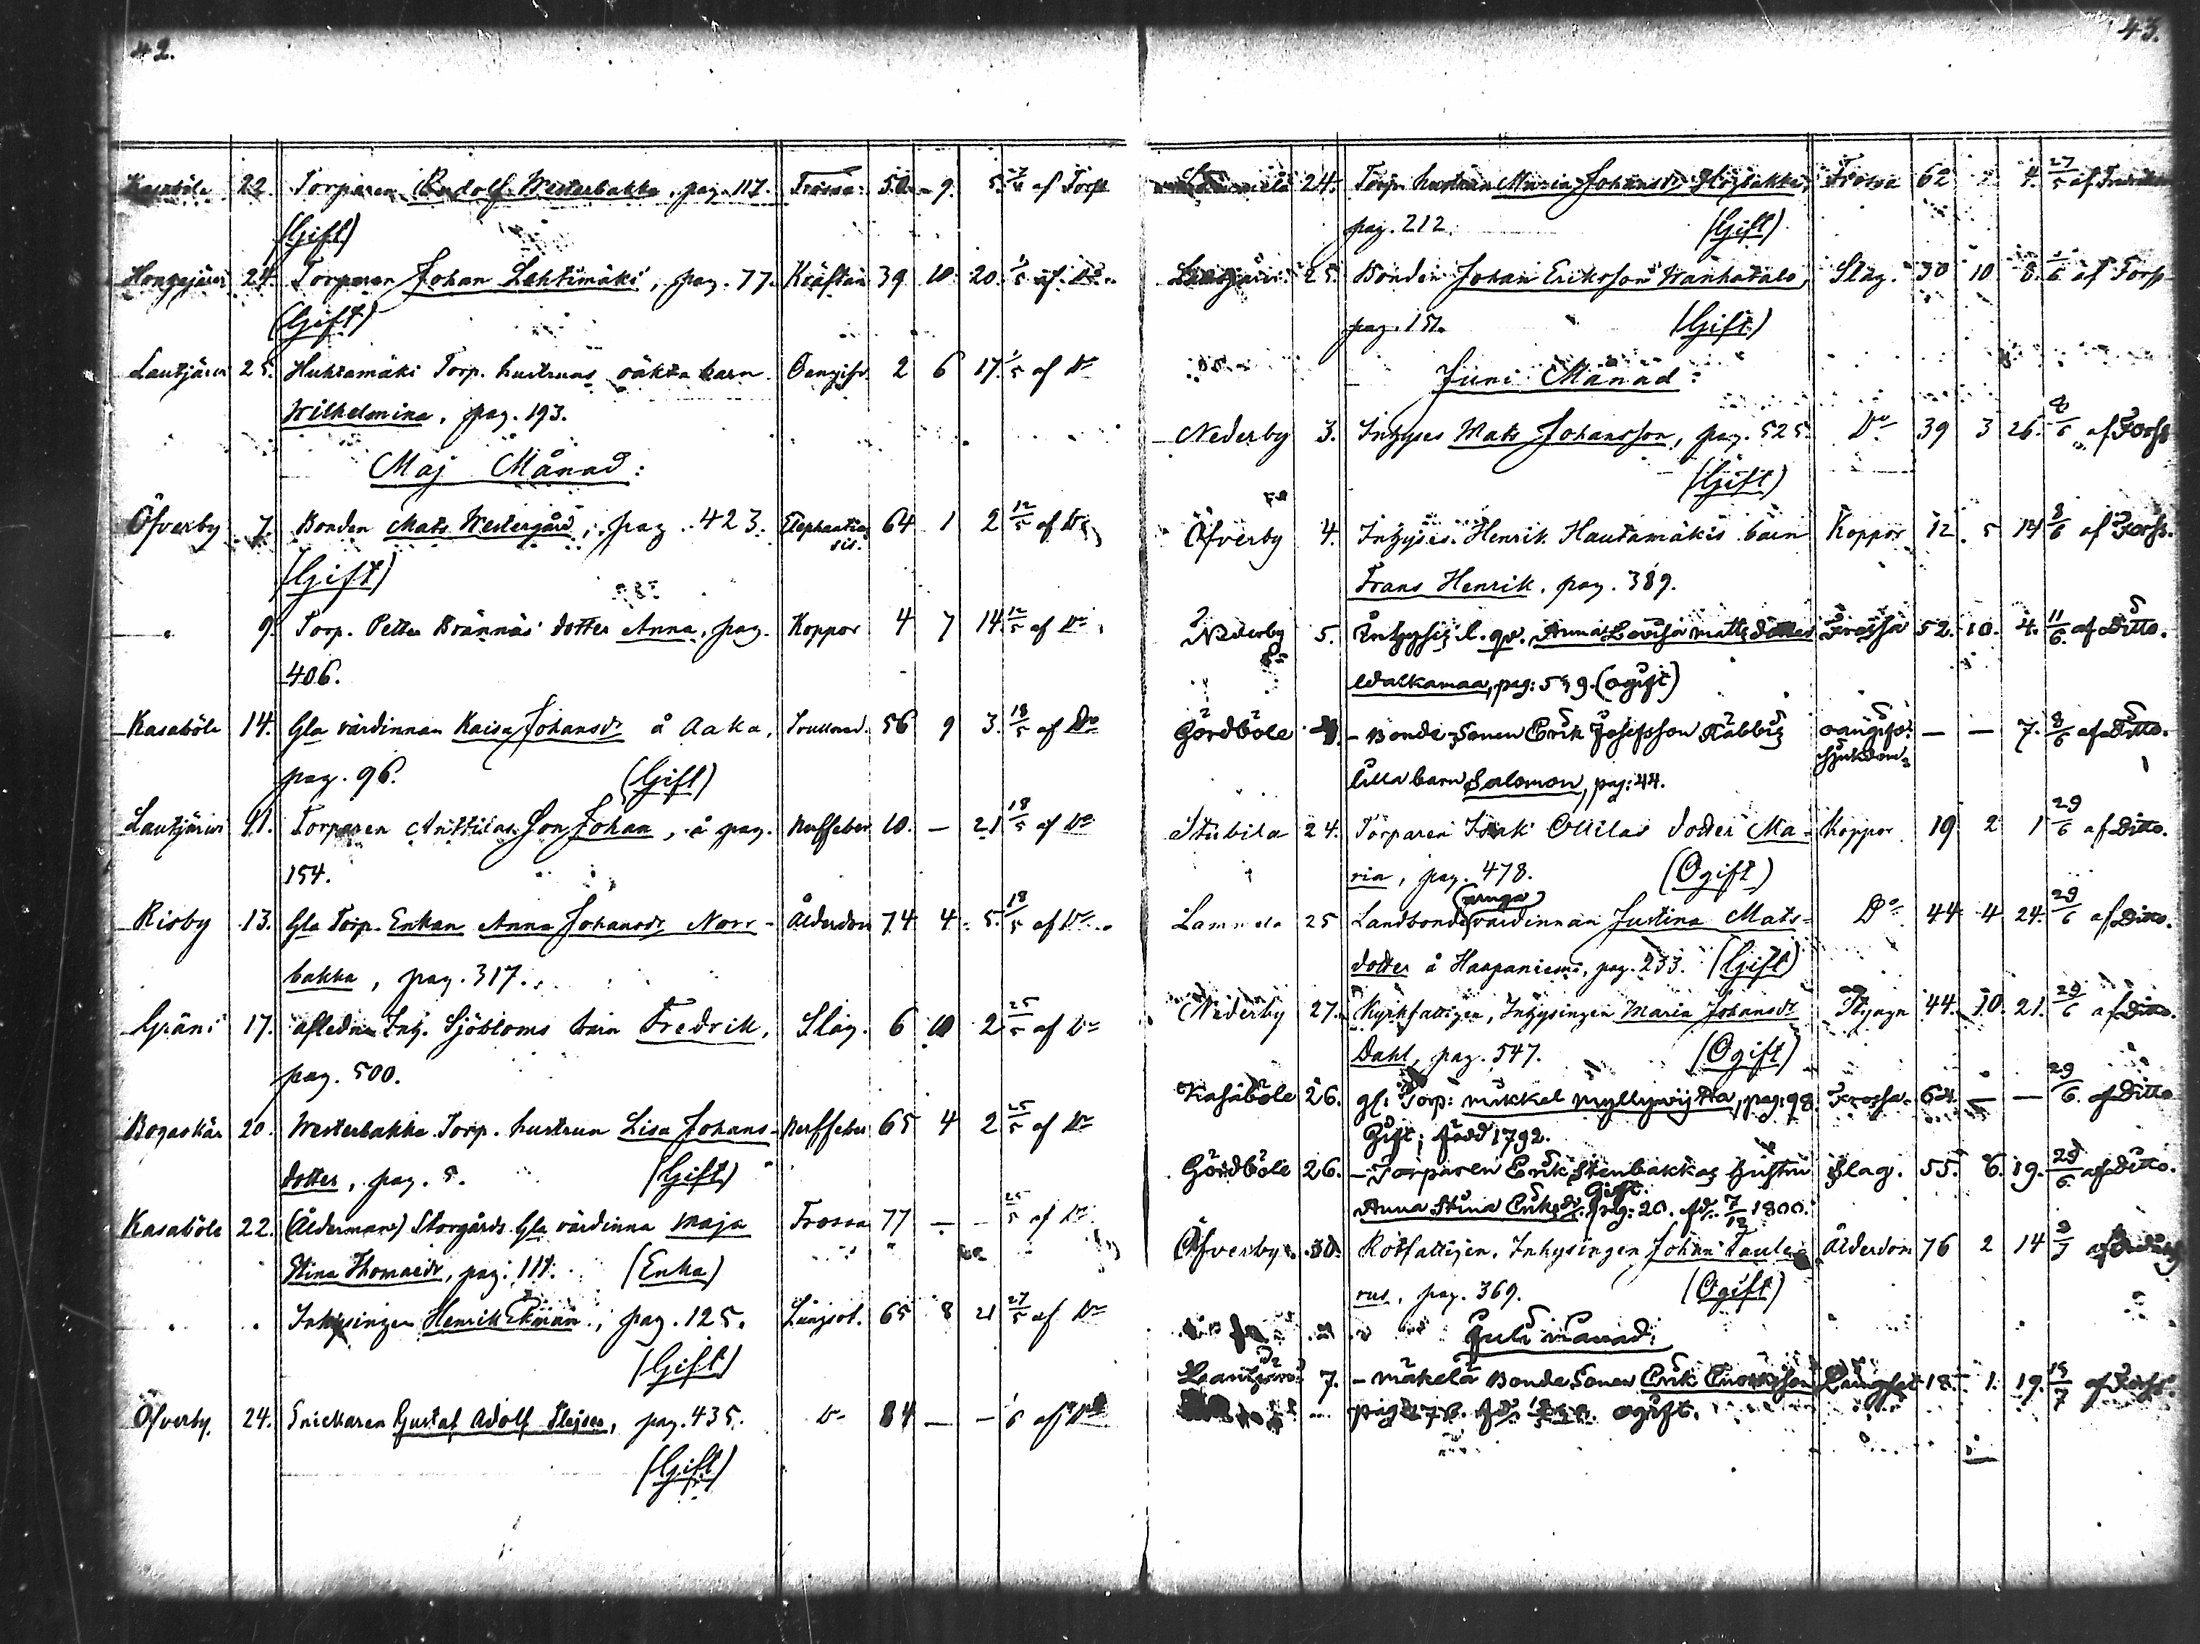 42.
Kasaböle 22. Torparen Rudolf Westerbakka, pag. 117. Frossa 50 9. 5. af Torp
(Gift)
Hongajärvi 24. Torparen Johan Lehtimäki, pag. 77. Kräftan 39 10 20. af Do
(Gift)
Lautjärvi 25. Huhtamäki Torp. hustrus oäkta barn Oangifv. 2 6 17. af Do
Wilhelmina, pag. 193.
Maj Månad:
Öfverby 7. Bonden Mats Westergård, pag. 423. Elephantia 64 1 2 12/5 af Do
sis.
(Gift)
9. Torp. Petter Brännäs dotter Anna, pag. Koppor 4 7 14 12/5 af Do
406.
Kasaböle 14. Gla värdinnan Kaisa Johansdr å Aaka, 56 9 3. 18/5 af Do
pag. 96. (Gift)
Lautjärvi 11. Torparen Anttilas Son Johan, å pag. Nerffeber 10. — 21 18/5 af Do
154.
Risby 13. Gla Torp. Enkan Anna Johansdr Norr- Ålderdom 74 4 5. 18/5 af Do
bakka, pag. 317.
Gräns 17. afledne Inh. Sjöbloms barn Fredrik, Slag. 6 10 2 25/5 af Do
pag. 500.
Bogaskär 20. Westerbakka Torp. hustrun Lisa Johans- Nerffeber 65 4 2 25/5 af Do
dotter, pag. 5. (Gift)
Kasaböle 22. (Åldermans) Storgårds Gla värdinna Maja Frossa 77 — — 25/5 af Do
Stina Thomasdr, pag. 111. (Enka)
Inhysingen Henrik Ekman, pag. 125. Lungsot. 65 8 21 27/5 af Do
(Gift)
Öfverby. 24. Snickaren Gustaf Adolf Flejser, pag. 435. Do 84 — — af Do
(Gift)
43.
24. Torp. hustrun Maria Johansdr pag. 212. Frossa 62 4. 27/5 af
(Gift)
25. Bonden Johan Eriksson Wanhatalo, Slag. 30 10 8. af Torp
pag. 151. (Gift)
Juni Månad:
Nederby 3. Inhyses Mats Johansson, pag. 525. Do 39 3 26. 8/6 af Forss
(Gift)
Öfverby 4. Inhyses Henrik Hautamäkis barn Koppor 12 5 14 8/6 af Forss.
Frans Henrik, pag. 389.
Nederby 5. Inhyses l. qv. Anna Lovisa Matts dotter Frossa 52. 10. 4. 11/6 af Ditto.
Walkamaa, pag: 5 9. (ogift)
Gördböle — Bonde Sonen Erik Josefsson Räbbis oangifv: — — 7. 8/6 af Ditto.
lilla barn Salomon, pag: 44. sjukdom
Stubila 24. Torparen Isak Ollilas dotter Ma- Koppor 19 2 1 29/6 af Ditto.
ria, pag. 478. (Ogift)
(unga)
25 Landbonde värdinnan Justina Mats- Do 44 4 24. 29/6 af Ditto.
dotter å Haapaniemi, pag. 233. (Gift)
Nederby 27. Kyrkfattigen, Inhysingen Maria Johansdr 44. 10. 21. 29/6 af Ditto.
Dahl, pag. 547. (Ogift)
Kasaböle 26. gl: Torp: Mickel Myllywijta, pag: 98. Frossa. 64. — — 29/6. af Ditto
Gift; född 1792.
Gördböle 26. — Torparen Erik Stenbakkas Hustru Slag. 55. 6. 19. 29/6. af Ditto.
Gift.
Anna Stina Eriksdr. pag: 20. fd. 7/12 1800.
Öfverby. 30. Rotfattigen, Inhysingen Johan Taule- Ålderdom 76 2 14 af
rus, pag. 369. (Ogift)
Juli månad:
7. — Mäkelä Bonde Sonen Erik Lungsot 18. 1. 19. 15/7 af Forss.
ogift.